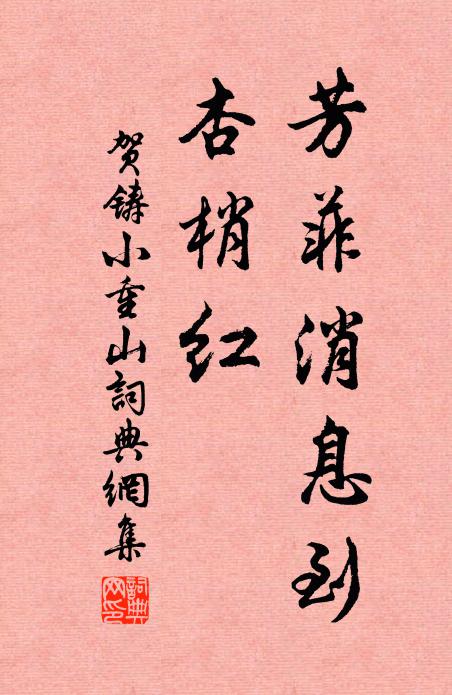 芳菲消息到
杏梢红
贺铸小重山詞典網集
詞典网印